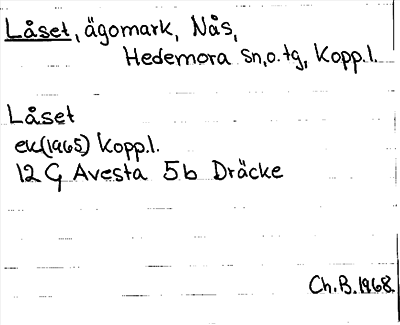 Låset, ägomark, Nås,
Hedemora sn,o.tg, Kopp.l.
Låset
ek(1965) Kopp.l.
12 G Avesta 5b Dräcke
Ch.B.1968.